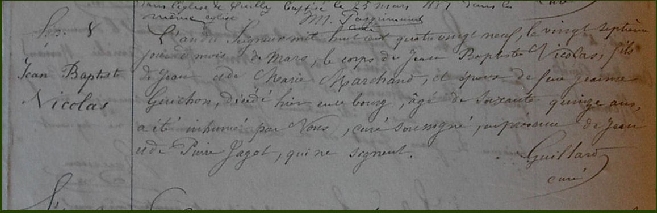 dans l'église de Neuilly baptisé le 23 mars 1851 dans la
même église M. Jacquemard
curé
Sép. 8 L'an du Seigneur mil huit cent quatre vingt neuf, le vingt septième
jour du mois de Mars, le corps de Jean Baptiste Nicolas, fils
Jean Baptiste de Jean et de Marie Marchand, et époux de feue Jeanne
Nicolas Guichon, décédé hier en ce bourg, âgé de soixante quinze ans,
a été inhumé par Nous, curé soussigné, en présence de Jean
et de Pierre Jagot, qui ne signent. Guillard
curé